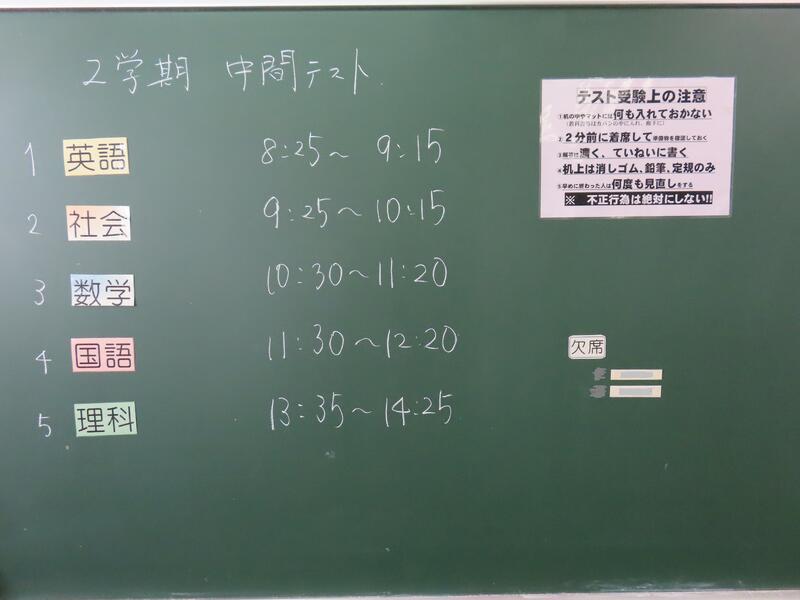 2学期 中間テスト
1 英語 8:25〜9:15
2 社会 9:25〜10:15
3 数学 10:30〜11:20
4 国語 11:30〜12:20
5 理科 13:35〜14:25
テスト受験上の注意
①机の中やマットには何も入れておかない
(教科書等はカバンの中に入れ、廊下に)
②2分前に着席して準備物を確認しておく
③解答は濃く、ていねいに書く
④机上は消しゴム、鉛筆、定規のみ
⑤早めに終わった人は何度も見直しをする
※ 不正行為は絶対にしない!!
欠席